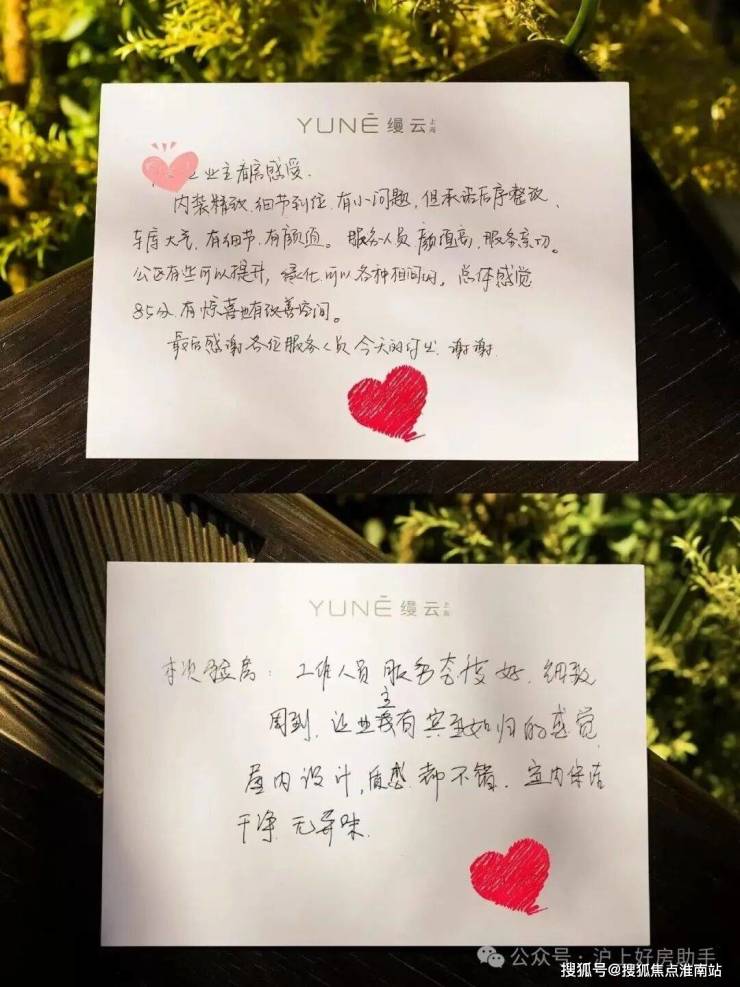 YUNĒ 缦云 上海
业主看房感受.
内装精致.细节到位.有小问题,但承诺后序整改、
车库大气,有细节.有颜值。服务人员颜值高,服务亲切。
公区有些可以提升,绿化可以各种相间的,总体感觉
85分.有惊喜也有改善空间。
最后感谢各位服务人员今天的付出.谢谢.
YUNĒ 缦云 上海
本次验房:工作人员服务态度好.细致
周到,让业主有宾至如归的感觉
屋内设计,质感都不错.室内保洁
干净无异味.
公众号·沪上好房助手
搜狐号@搜狐焦点淮南站